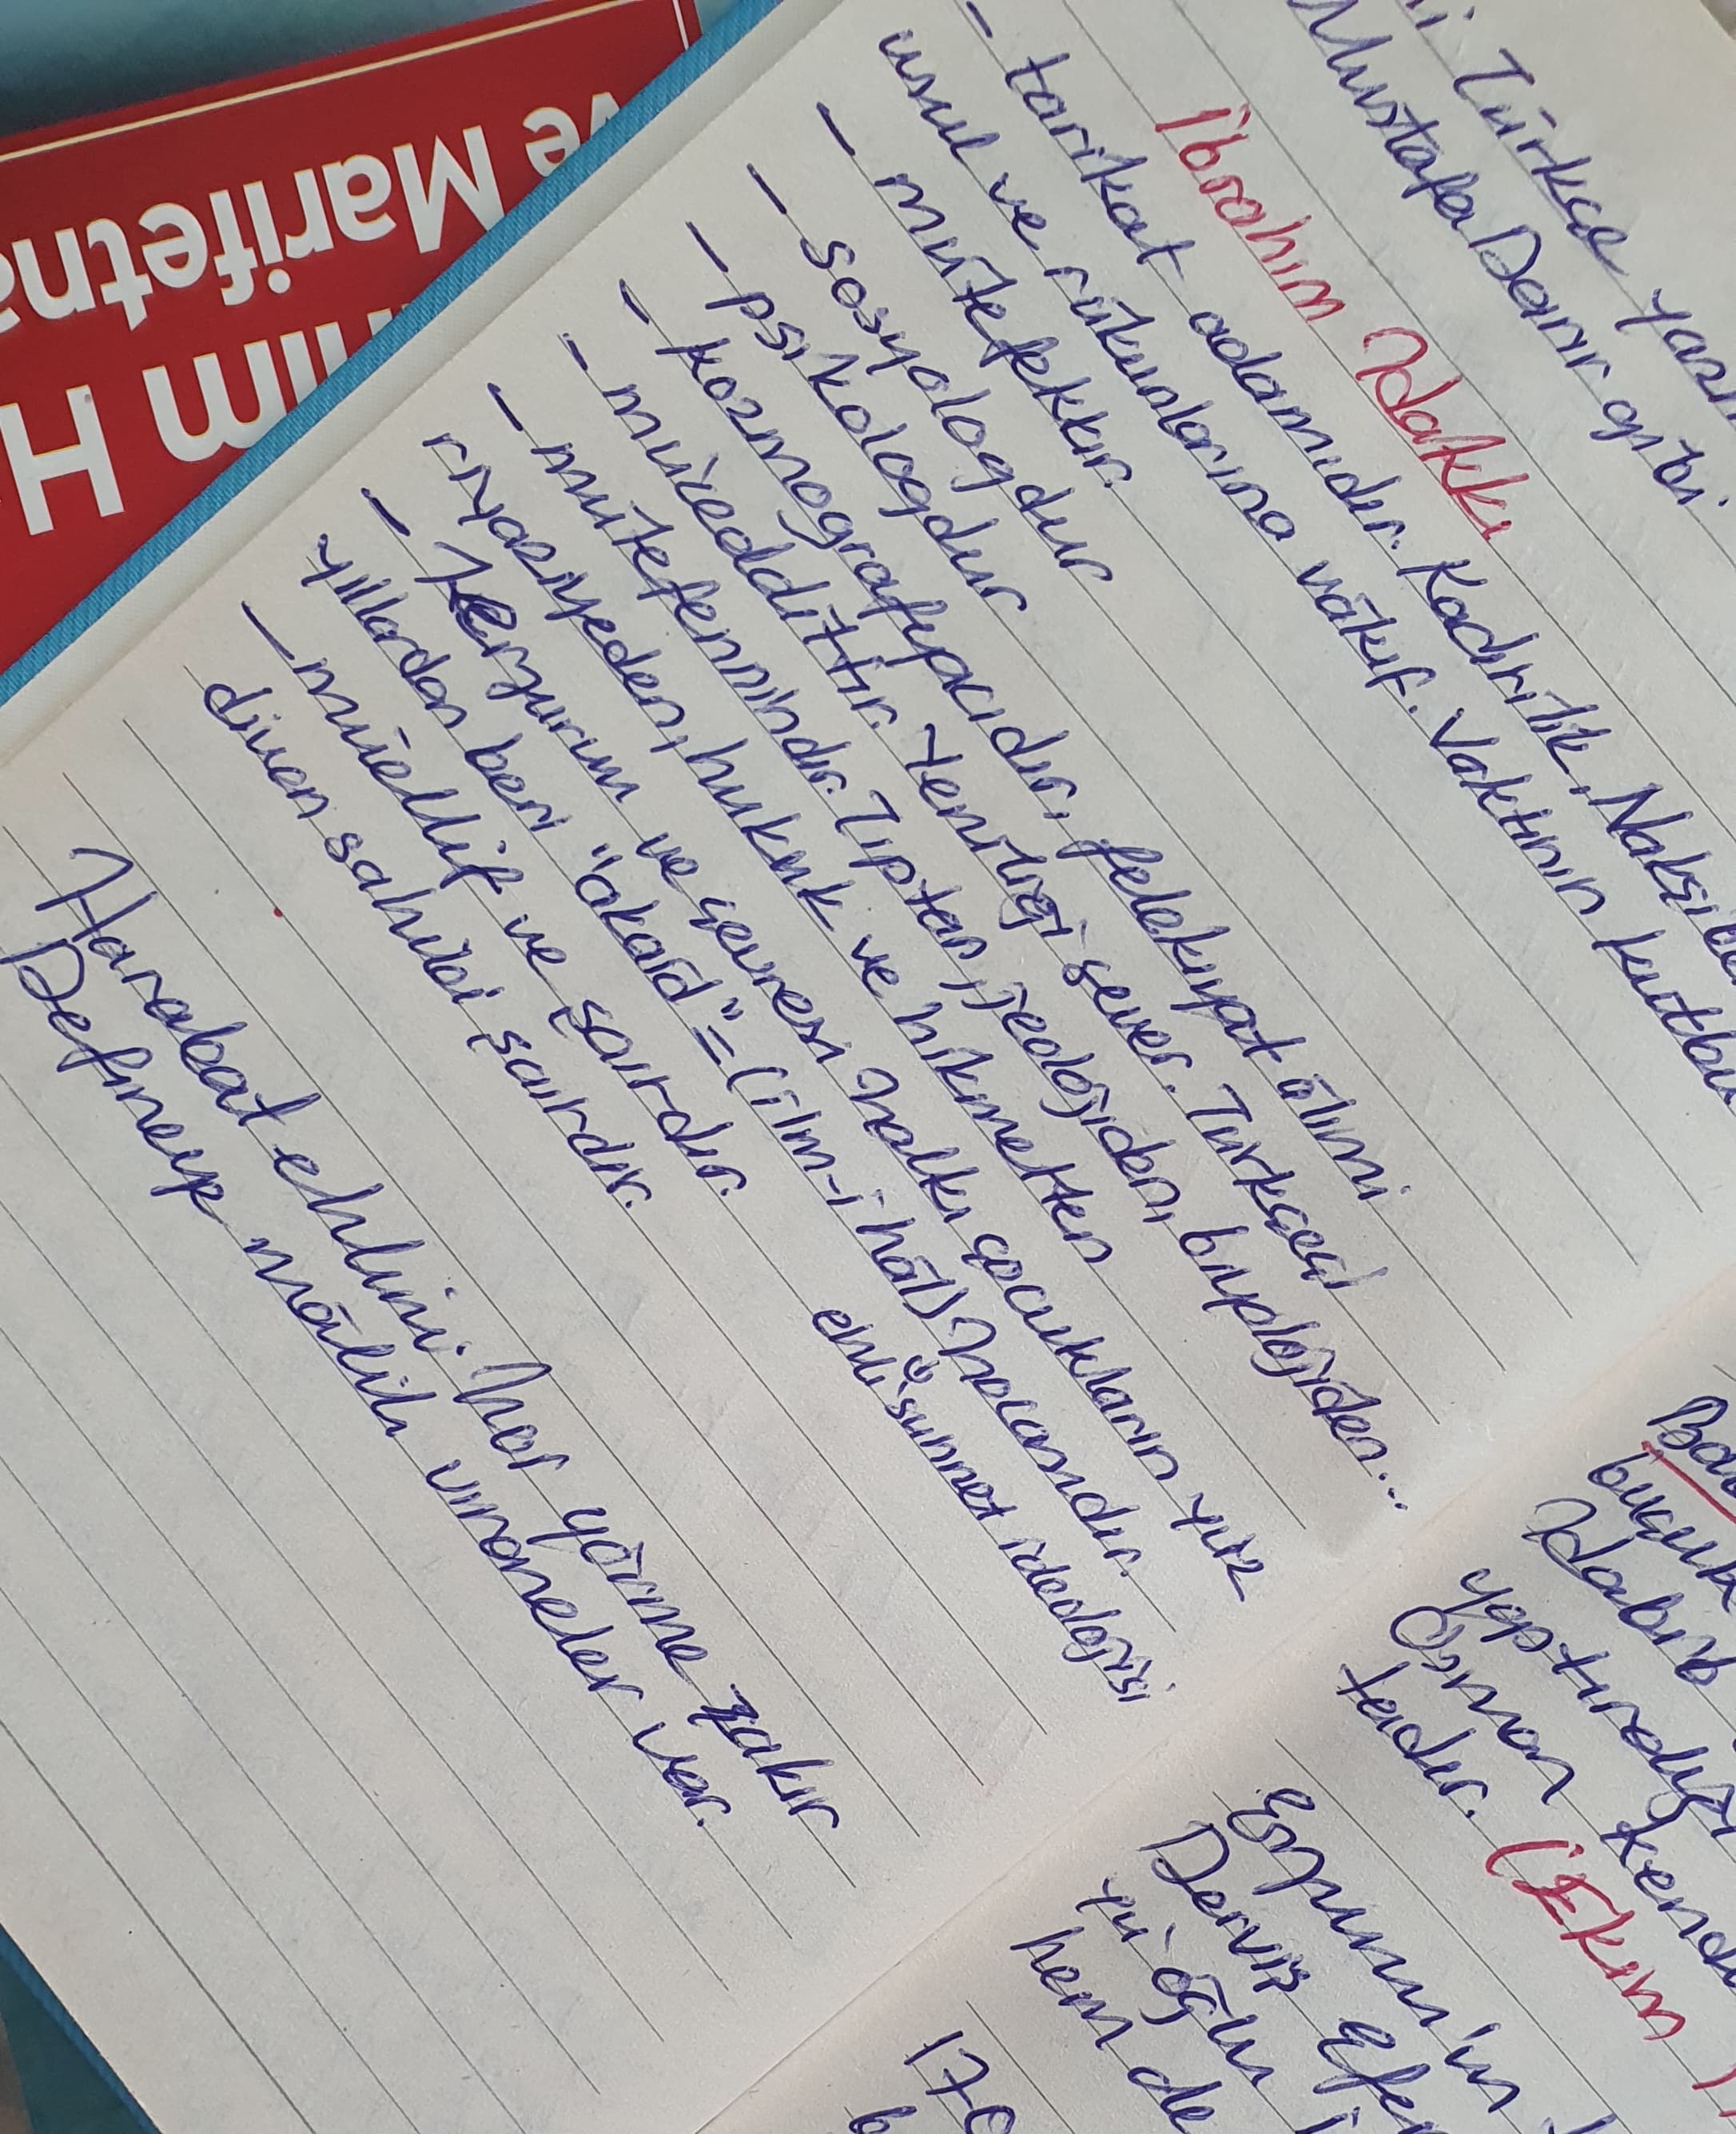 ve Marifetna
im H
Türkçe yazı
Mustafa Darir gibi
İbrahim Hakkı
- tarikat adamıdır. Kadirîlik, Nakşibe
usul ve rükunlarına vâkıf. Vaktinin kutbu
- mütefekkir.
- sosyologdur
- psikologdur
- kozmografyacıdır, felekiyat âlimi
- müceddittir. Yeniliği sever. Türkçeci
- mütefennindir. Tıptan, jeolojiden, biyolojiden...
riyaziyeden, hukuk ve hikmetten
- Erzurum ve çevresi halkı, çocukların yüz
yıllardan beri "akaid" = (ilm-i hâl) hocamdır.
ehli sünnet ideolojisi
- müellif ve şairdir.
divan sahibi şairdir.
Harabat ehlini hor görme zakir
Defineye mâlik viraneler var.
buçuk
Habib
yaptırdığı
Osman kend
tedir. (Ekim
Erzurum'un
Derviş Efen
hem de
170